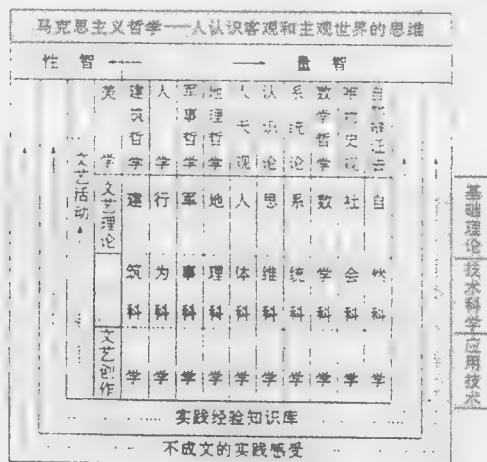 马克思主义哲学——人认识客观和主观世界的思维
性 智 ← → 量 智
文艺活动
美学
建筑哲学
人学
军事哲学
地理哲学
人天观
认识论
系统论
数学哲学
唯物史观
自然辩证法
文艺理论
文艺创作
建筑科学
行为科学
军事科学
地理科学
人体科学
思维科学
系统科学
数学科学
社会科学
自然科学
基础理论
技术科学
应用技术
实践经验知识库
不成文的实践感受